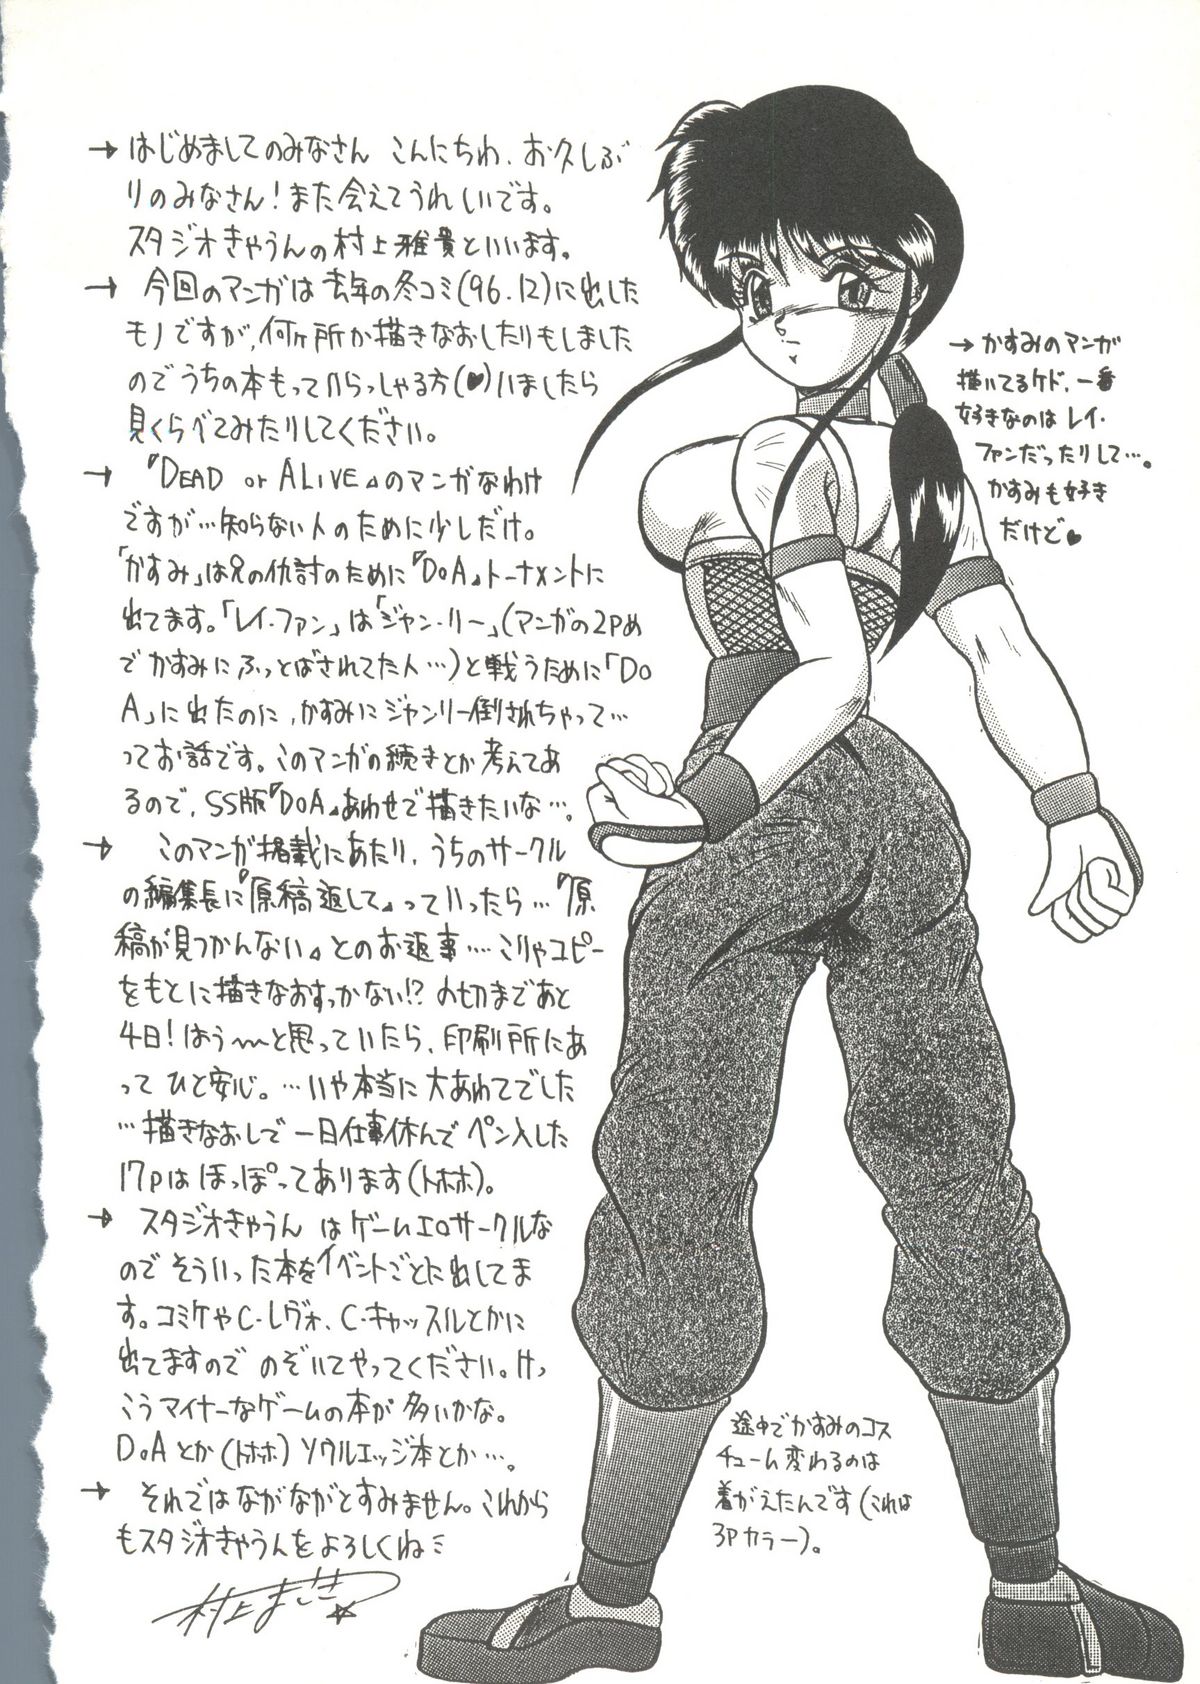 → はじめましてのみなさん こんにちわ、お久しぶ
りのみなさん!また会えてうれしいです。
スタジオきゃうんの村上雅貴といいます。
→ 今回のマンガは去年の冬コミ(96.12)に出した
モノですが、何ヶ所か描きなおしたりもしました
のでうちの本もっていらっしゃる方(♥)いましたら
見くらべてみたりしてください。
→ 『DEAD or ALIVE』のマンガなわけ
ですが…知らない人のために少しだけ。
「かすみ」は兄の仇討のために『DoA』トーナメントに
出てます。「レイ・ファン」は「ジャン・リー」(マンガの2Pめ
でかすみにふっとばされてた人…)と戦うために「Do
A」に出たのに、かすみにジャンリー倒されちゃって…
ってお話です。このマンガの続きとか考えてあ
るので、SS版『DoA』あわせで描きたいな…。
→ このマンガ掲載にあたり、うちのサークル
の編集長に『原稿返して』っていったら…『原
稿が見つかんない』とのお返事…こりゃコピー
をもとに描きなおすっかない!?〆切まであと
4日!はう〜と思っていたら、印刷所にあ
って ひと安心。…いや本当に大あわてでした
…描きなおしで一日仕事休んでペン入した
17pはほっぽってあります(トホホ)。
→ スタジオきゃうん はゲームエロサークルな
のでそういった本をイベントごとに出してま
す。コミケやC・レヴォ、C・キャッスルとかに
出てますので のぞいてやってください。けっ
こうマイナーなゲームの本が多いかな。
DoAとか(トホホ)ソウルエッジ本とか…。
→ それではながながとすみません。これから
もスタジオきゃうんをよろしくね
村上まさき☆
→ かすみのマンガ
描いてるケド、一番
好きなのはレイ・
ファンだったりして…。
かすみも好き
だけど♥
途中でかすみのコス
チューム変わるのは
着がえたんです(これは
3Pカラー)。